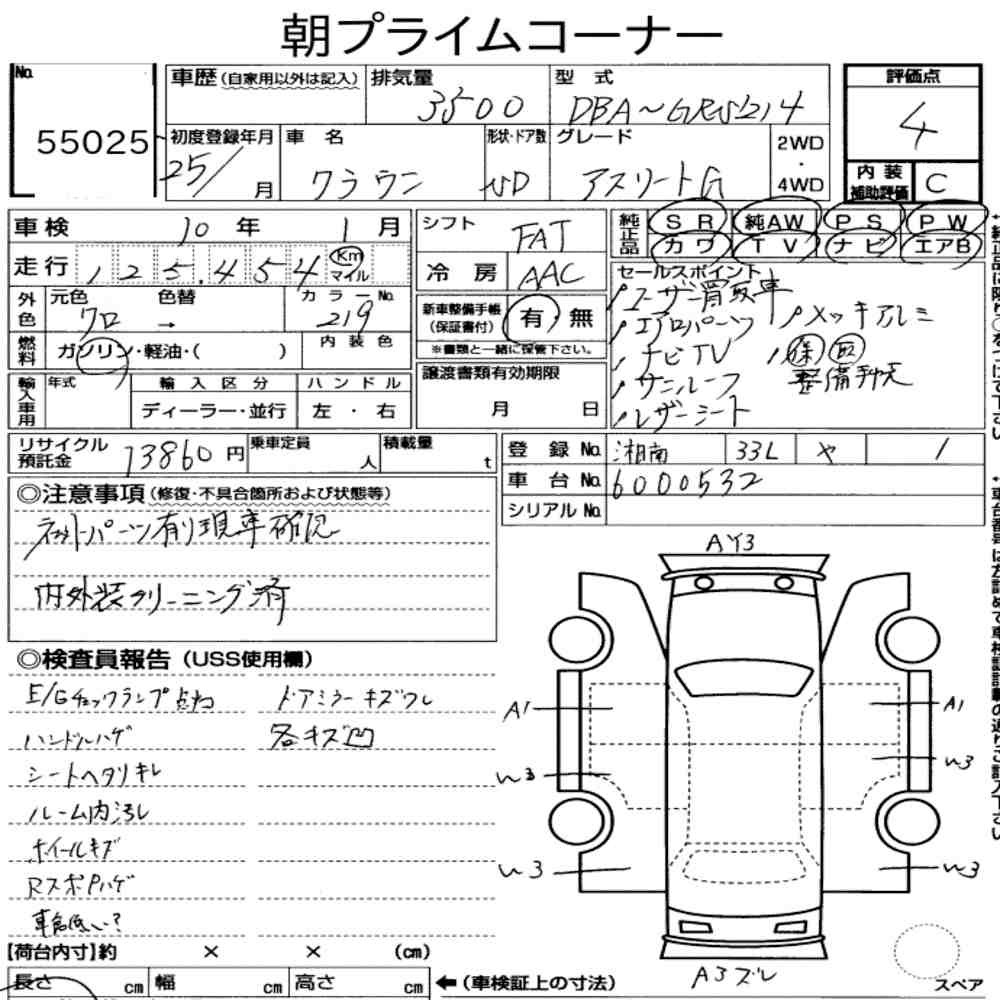 朝プライムコーナー
No.
55025
車歴 (自家用以外は記入)
排気量
3500
型式
DBA~GRS214
評価点
4
初度登録年月
25/ 月
車名
クラウン
形状・ドア数
SD
グレード
アスリートG
2WD
・
4WD
内装
補助評価
C
車検 10年 1月
走行 125,454 Km
マイル
シフト
FAT
冷房
AAC
純正品
SR 純AW PS PW
カワ TV ナビ エアB
外色
元色
クロ
色替
→
カラーNo.
219
燃料
ガソリン・軽油・( )
内装色
新車整備手帳
(保証書付)
有 無
※書類と一緒に保管下さい。
セールスポイント
ユーザー買取車
エアロパーツ メッキアルミ
ナビTV 保 取
サンルーフ 整備手帳
レザーシート
輸入車用
年式
輸入区分
ディーラー・並行
ハンドル
左・右
譲渡書類有効期限
月 日
リサイクル
預託金
13860円
乗車定員
人
積載量
t
登録No. 湘南 33L や 1
車台No. 6000532
シリアルNo.
◎注意事項 (修復・不具合箇所および状態等)
ネットパーツ有り現車確認
内外装クリーニング済
◎検査員報告 (USS使用欄)
E/Gチェックランプ点灯
ドアミラーキズワレ
ハンドルハゲ
各キズ凹
シートヘタリキレ
ルーム内汚れ
ホイールキズ
RスポPハゲ
車高低い?
AY3
A1
A1
W3
W3
W3
W3
A3ズレ
スペア
【荷台内寸】約 × × (cm)
長さ cm 幅 cm 高さ cm
←(車検証上の寸法)